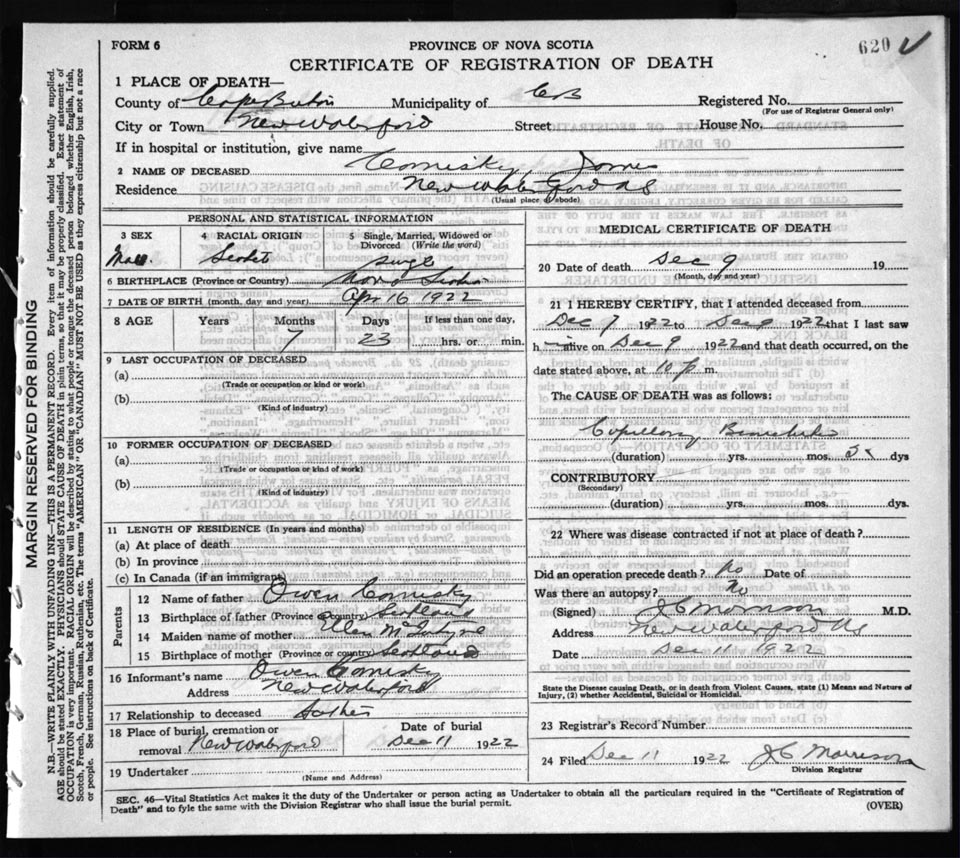 FORM 6
PROVINCE OF NOVA SCOTIA
620
CERTIFICATE OF REGISTRATION OF DEATH
1 PLACE OF DEATH—
County of Cape Breton Municipality of CB Registered No.
(For use of Registrar General only)
City or Town New Waterford Street House No.
If in hospital or institution, give name
2 NAME OF DECEASED Comisky, James
Residence New Waterford NS
(Usual place of abode)
PERSONAL AND STATISTICAL INFORMATION
3 SEX 4 RACIAL ORIGIN 5 Single, Married, Widowed or Divorced (Write the word)
Male Scotch Single
6 BIRTHPLACE (Province or Country) Nova Scotia
7 DATE OF BIRTH (month, day and year) Apr 16 1922
8 AGE Years Months Days If less than one day,
7 23 hrs. or min.
9 LAST OCCUPATION OF DECEASED
(a)
(Trade or occupation or kind or work)
(b)
(Kind of industry)
10 FORMER OCCUPATION OF DECEASED
(a)
(Trade or occupation or kind or work)
(b)
(Kind of industry)
11 LENGTH OF RESIDENCE (In years and months)
(a) At place of death
(b) In province
(c) In Canada (if an immigrant)
Parents
12 Name of father Owen Comisky
13 Birthplace of father (Province or Country) Scotland
14 Maiden name of mother Ellen McIntyre
15 Birthplace of mother (Province or Country) Scotland
16 Informant's name Owen Comisky
Address New Waterford
17 Relationship to deceased Father
18 Place of burial, cremation or removal New Waterford Date of burial Dec 11 1922
19 Undertaker
(Name and Address)
MEDICAL CERTIFICATE OF DEATH
20 Date of death Dec 9 19
(Month, day and year)
21 I HEREBY CERTIFY, that I attended deceased from
Dec 7 1922 to Dec 9 1922 that I last saw
h im alive on Dec 9 1922 and that death occurred, on the
date stated above, at 10 p. m.
The CAUSE OF DEATH was as follows:
Capillary Bronchitis
(duration) yrs. mos. dys
CONTRIBUTORY
(Secondary)
(duration) yrs. mos. dys.
22 Where was disease contracted if not at place of death?
Did an operation precede death? No Date of
Was there an autopsy? No
(Signed) J C Morrison M.D.
Address New Waterford NS
Date Dec 11 1922
State the Disease causing Death, or in death from Violent Causes, state (1) Means and Nature of
Injury, (2) whether Accidental, Suicidal or Homicidal.
23 Registrar's Record Number
24 Filed Dec 11 1922 J C Morrison
Division Registrar
SEC. 46—Vital Statistics Act makes it the duty of the Undertaker or person acting as Undertaker to obtain all the particulars required in the "Certificate of Registration of
Death" and to fyle the same with the Division Registrar who shall issue the burial permit. (OVER)
MARGIN RESERVED FOR BINDING
N.B.—WRITE PLAINLY WITH UNFADING INK—THIS IS A PERMANENT RECORD. Every item of information should be carefully supplied.
AGE should be stated EXACTLY. PHYSICIANS should STATE CAUSE OF DEATH in plain terms, so that it may be properly classified. Exact statement of
OCCUPATION is very important. RACIAL ORIGIN will be described by stating to what people or tongue the deceased person belonged whether English, Irish,
Scotch, French, German, Russian, Ruthenian, etc. The terms "AMERICAN" OR "CANADIAN" MUST NOT BE USED as they express citizenship but not a race
or people. See instructions on back of Certificate.